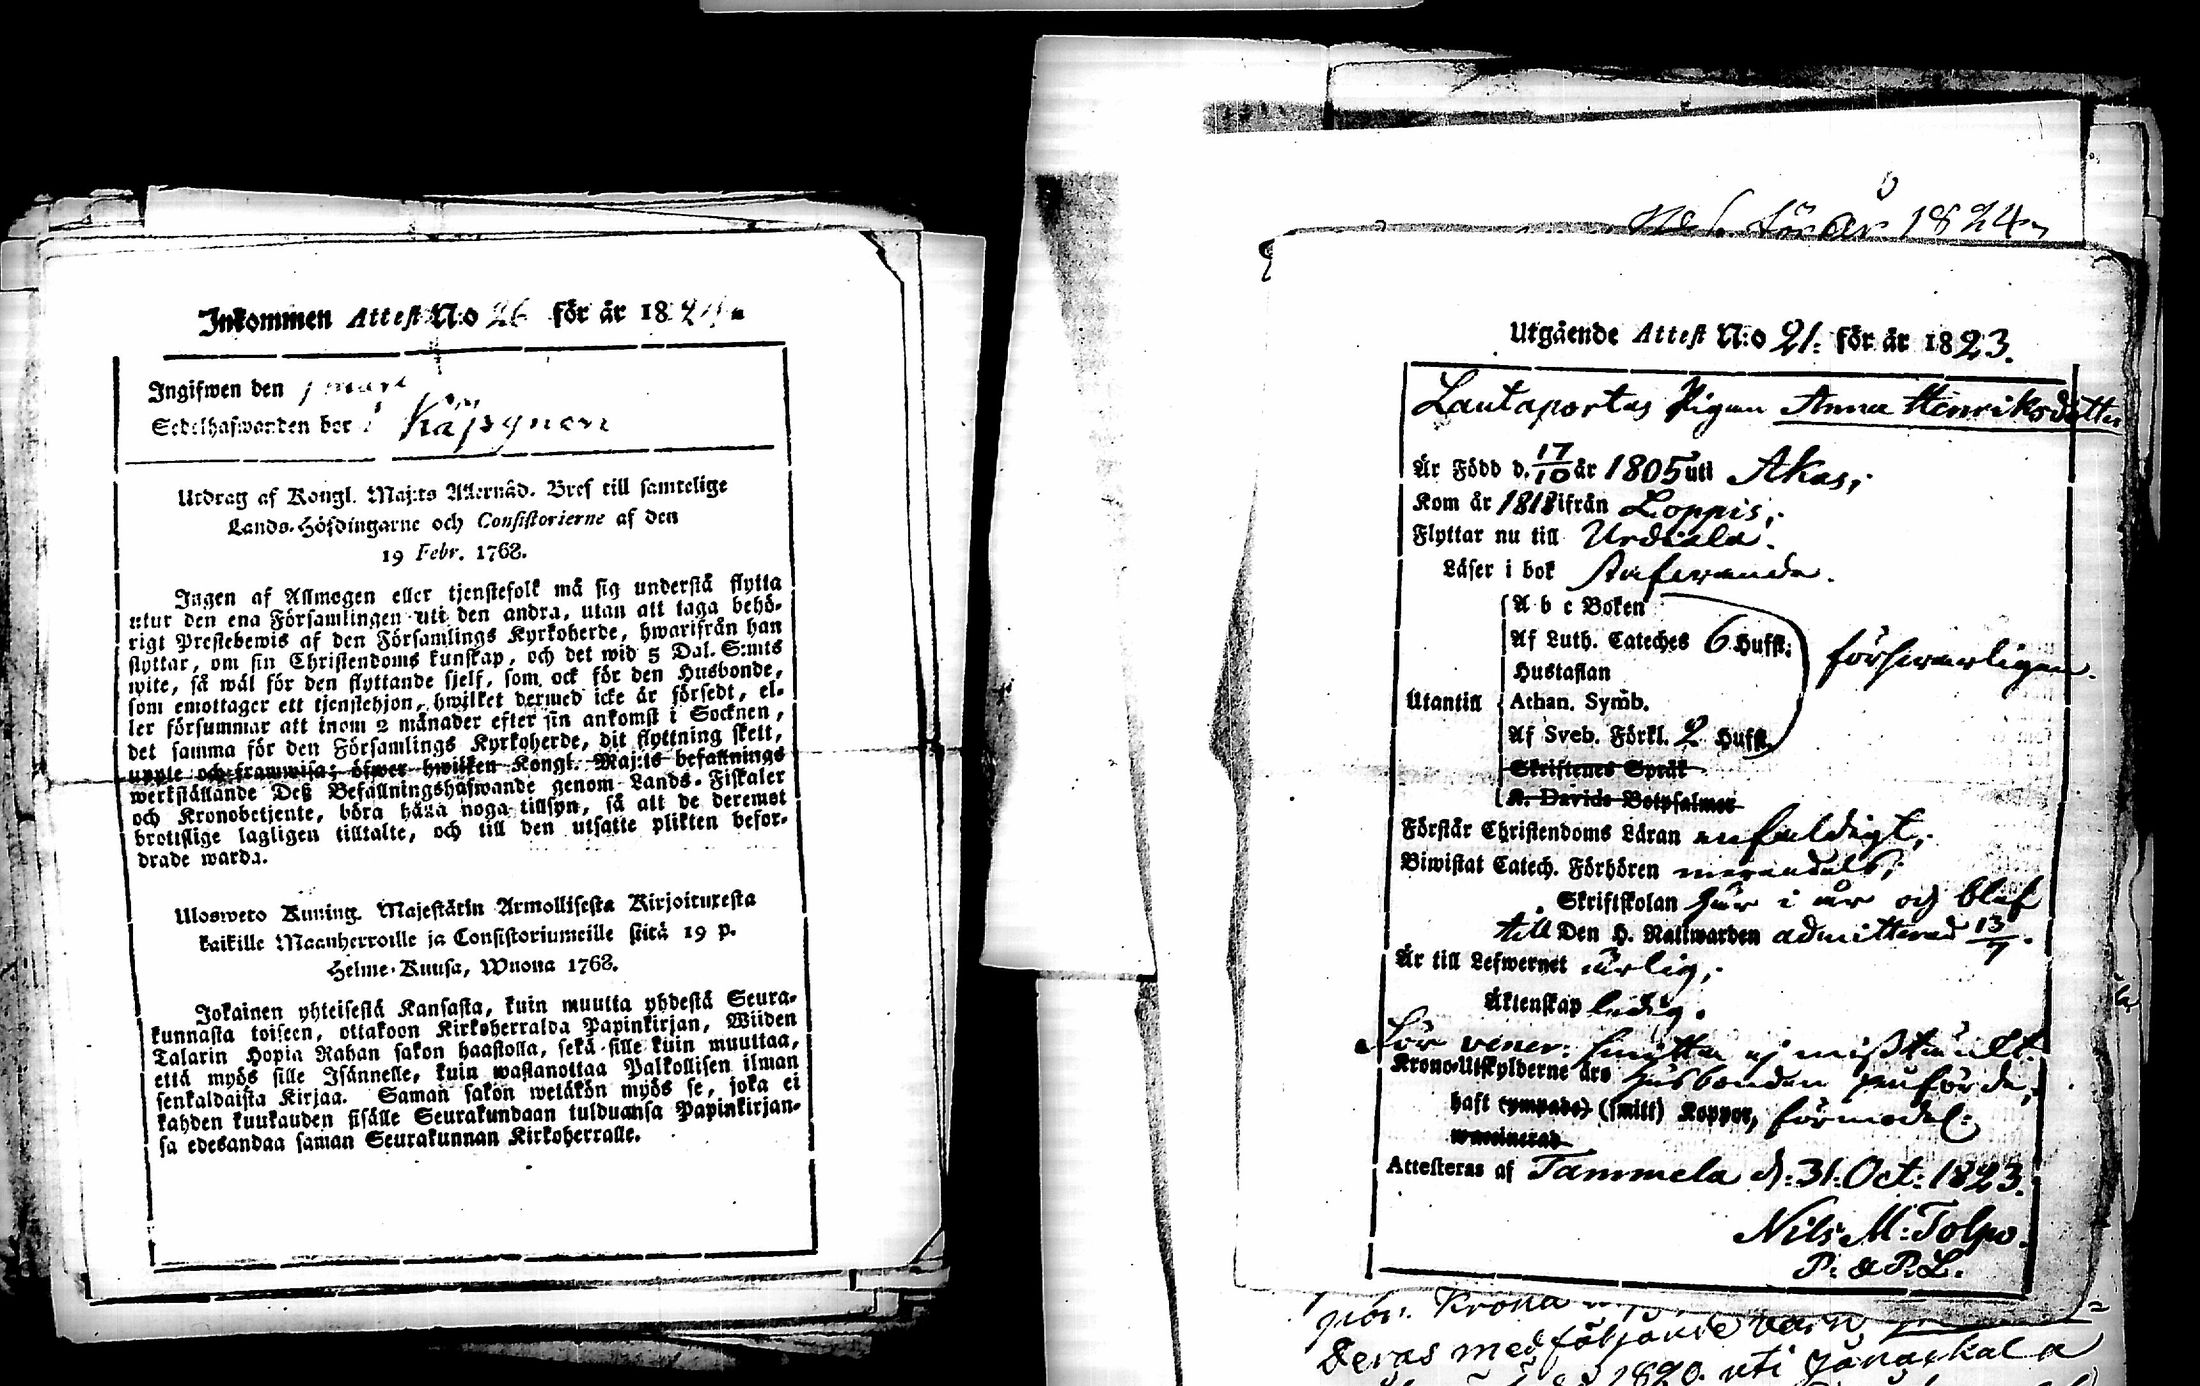 Inkommen Attest N:o 26 för år 1824
Ingifwen den 1 mars
Sedelhafwanden bor i Käpynen
Utdrag af Kongl. Maj:ts Allernåd. Bref till samtelige
Lands-Höfdingarne och Consistorierne af den
19 Febr. 1768.
Ingen af Allmogen eller tjenstefolk må sig understå flytta
utur den ena Församlingen uti den andra, utan att taga behö-
rigt Prestebewis af den Församlings Kyrkoherde, hwarifrån han
flyttar, om sin Christendoms kunskap, och det wid 5 Dal. S:mts
wite, så wäl för den flyttande sjelf, som ock för den Husbonde,
som emottager ett tjenstehjon, hwilket dermed icke är försedt, el-
ler försummar att inom 2 månader efter sin ankomst i Socknen,
det samma för den Församlings Kyrkoherde, dit flyttning skett,
uppte och framwisa; öfwer hwilken Kongl. Maj:ts befallnings
werkställande Deß Befallningshafwande genom Lands-Fiskaler
och Kronobetjente, böra hålla noga tillsyn, så att de deremot
brottslige lagligen tilltalte, och till den utsatte plikten befor-
drade warda.
Ulosweto Kuning. Majestärin Armollisesta Kirjoituxesta
kaikille Maanherroille ja Consistoriumeille siitä 19 p.
Helme-Kuusa, Wuona 1768.
Jokainen yhteisestä Kansasta, kuin muutta yhdestä Seura-
kunnasta toiseen, ottakoon Kirkoherralda Papinkirjan, Wiiden
Talarin Hopia Rahan sakon haastolla, sekä sille kuin muuttaa,
että myös sille Isännelle, kuin wastanottaa Palkollisen ilman
senkaldaista Kirjaa. Saman sakon wetäkön myös se, joka ei
kahden kuukauden sisälle Seurakundaan tulduansa Papinkirjan-
sa edesandaa saman Seurakunnan Kirkoherralle.
för år 1824
Utgående Attest N:o 21. för år 1823.
Lautaportas Pigan Anna Henriksdotter
Är Född d. 17/10 år 1805 uti Akas,
Kom år 1818 ifrån Loppis,
Flyttar nu till Urdiala.
Läser i bok stafwande.
A b c Boken
Af Luth. Cateches 6 Hufst. försvarligen.
Hustaflan
Utantill Athan. Symb.
Af Sveb. Förkl. 2 Hufst.
Skriftenes Språk
K. Davids Botpsalmer
Förstår Christendoms Läran enfaldigt,
Biwistat Catech. Förhören merendels,
Skriftskolan här i år och blef
till Den H. Nattwarden admitterad 13/7.
Är till Lefwernet ärlig,
Äktenskap ledig.
För vener. smitta ej mißtänkt.
Krono-Utskylderne års Husbonden påförde,
haft ympade) (smitt) Koppor, förmodel:
waccinerad
Attesteras af Tammela d. 31. Oct. 1823.
Nils M. Tolpo.
P. & P. L.
Deras medföljande barn
1820. uti